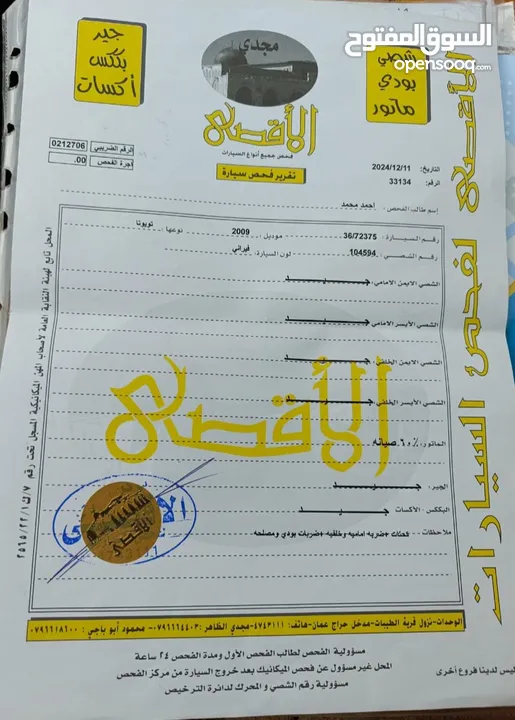 السوق المفتوح
opensooq.com
جير
بكس
أكسات
مجدي
الأقصى
فحص جميع أنواع السيارات
تقرير فحص سيارة
شصي
بودي
ماتور
الرقم الضريبي 0212706
أجرة الفحص .00
التاريخ: 2024/12/11
الرقم: 33134
إسم طالب الفحص: احمد محمد
رقم السيارة: 36/72375 موديل: 2009 نوعها: تويوتا
رقم الشصي: 104594 لون السيارة: فيراني
الشصي الايمن الامامي: جيد
الشصي الأيسر الامامي: جيد
الشصي الايمن الخلفي: جيد
الشصي الأيسر الخلفي: جيد
الأقصى
الماتور: ٪ و ٦ صيانه
الجير: جيد
البكس: الأكسات جيد
ملاحظات: قصات +ضربه اماميه وخلفيه +ضربات بودي ومصلحه
الأقصى
الأقصى لفحص السيارات
المحل تابع لهيئة النقابة العامة لأصحاب المهن الميكانيكية المسجل تحت رقم
الوحدات-نزول قرية الطيبات-مدخل حراج عمان-هاتف: ٤٧٤٣١١١-مجدي الظاهر: ٠٧٩٦١١٤٤٠٣- محمود أبو باجي : ٠٧٩٦١١٨٦٠٠
مسؤولية الفحص لطالب الفحص الأول ومدة الفحص ٢٤ ساعة
المحل غير مسؤول عن فحص الميكانيك بعد خروج السيارة من مركز الفحص
مسؤولية رقم الشصي و المحرك لدائرة الترخيص
ليس لدينا فروع أخرى